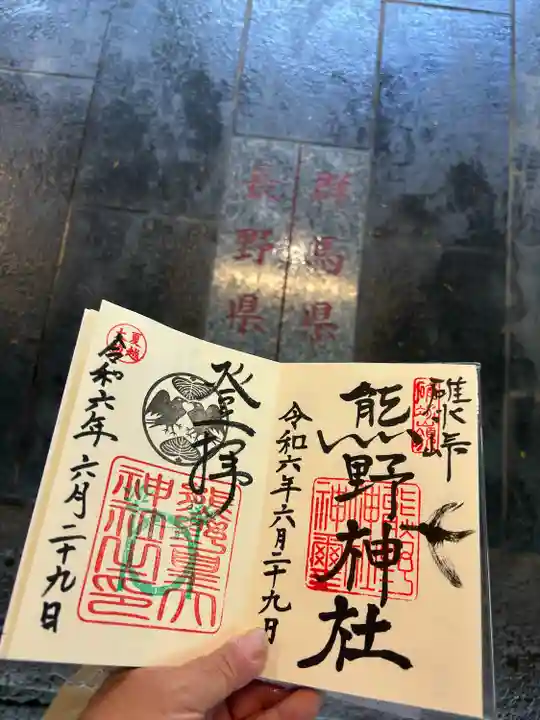 群馬県
長野県
碓氷峠
熊野神社
令和六年六月二十九日
登拝
夏越
大祓
令和六年六月二十九日
熊野皇大
神社之印